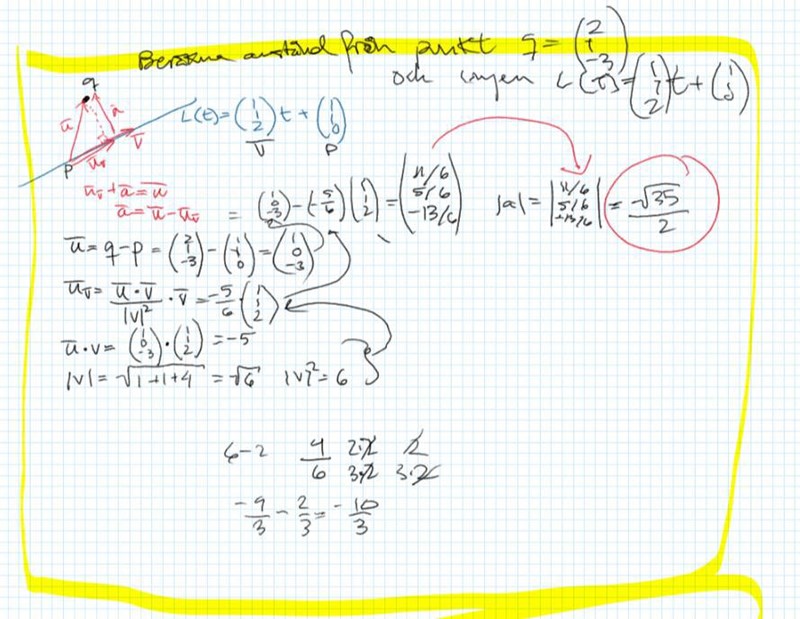 Beräkna avstånd från punkt q = (2 1 -3)
och linjen L(t) = (1 1 2)t + (1 1 0)
q
L(t) = (1 1 2)t + (1 1 0)
v p
ū ā v̄
p ū_v̄
ū_v̄ + ā = ū
ā = ū - ū_v̄ = (1 0 -3) - (-5/6)(1 1 2) = (11/6 5/6 -13/6) |a| = |11/6 5/6 -13/6| = √35/2
ū = q - p = (2 1 -3) - (1 1 0) = (1 0 -3)
ū_v̄ = ū · v̄/|v|² · v̄ = -5/6 · (1 1 2)
ū · v = (1 0 -3) · (1 1 2) = -5
|v| = √1+1+4 = √6 |v|² = 6
6-2 4/6 2·2/3·2 2/3·2
-9/3 - 2/3 = -10/3